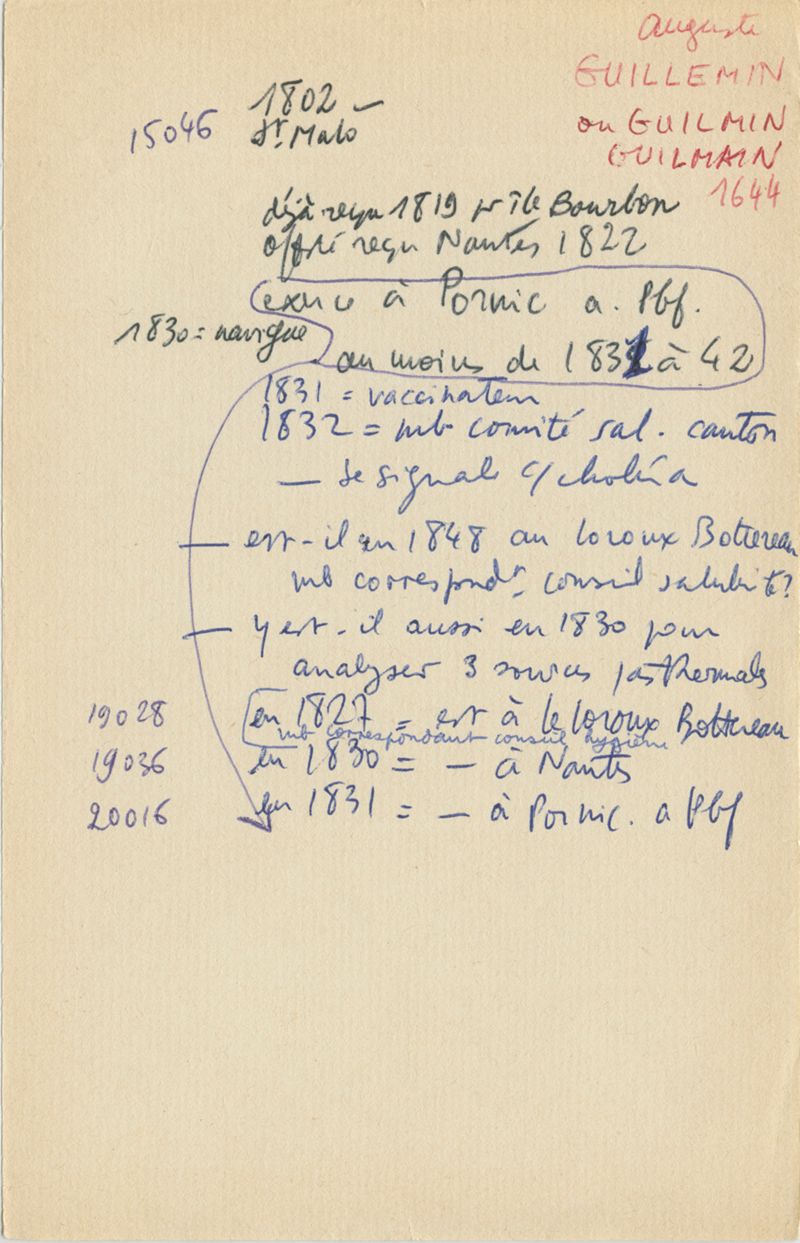 Auguste
GUILLEMIN
ou GUILMIN
GUILMAIN
1644
1802 —
15046 St. Malo
déjà reçu 1819 pr île Bourbon
offé reçu Nantes 1822
exerce à Pornic a. Pbf.
1830 = navigue
au moins de 1831 à 42
1831 = vaccinateur
1832 = mb comité sal. canton
— se signale c/ choléra
— est-il en 1848 au loroux Bottereau
mb correspondt. conseil salubrité?
— y est-il aussi en 1830 pour
analyser 3 sources thermales
19028 en 1827 = est à le loroux Bottereau
mb correspondant conseil hygiène
19036 en 1830 = — à Nantes
20016 en 1831 = — à Pornic. a Pbf